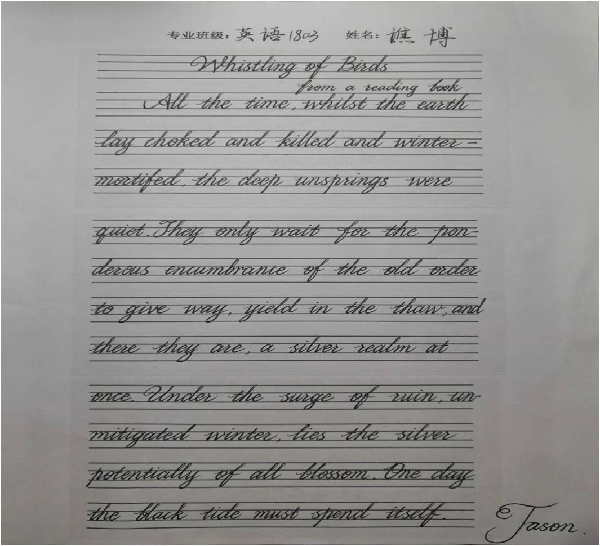 专业班级: 英语1803 姓名: 谯博
Whistling of Birds
from a reading book
All the time, whilst the earth
lay choked and killed and winter-
mortifed, the deep unsprings were
quiet. They only wait for the pon-
derous encumbrance of the old order
to give way, yield in the thaw, and
there they are, a silver realm at
once. Under the surge of ruin, un-
mitigated winter, lies the silver
potentially of all blossom. One day
the black tide must spend itself.
Jason.